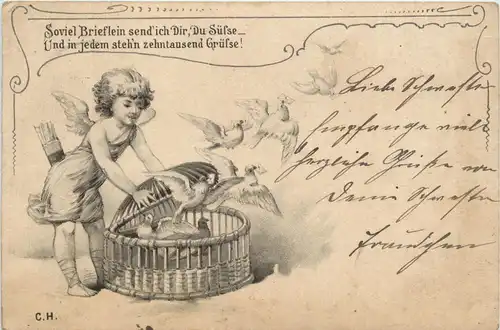 Soviel Brieflein send' ich Dir, Du Süſse_
Und in jedem steh'n zehntausend Grüſse!
Liebe Schwester
Empfange viele
herzliche Grüße von
Deine Schwester
C.H.